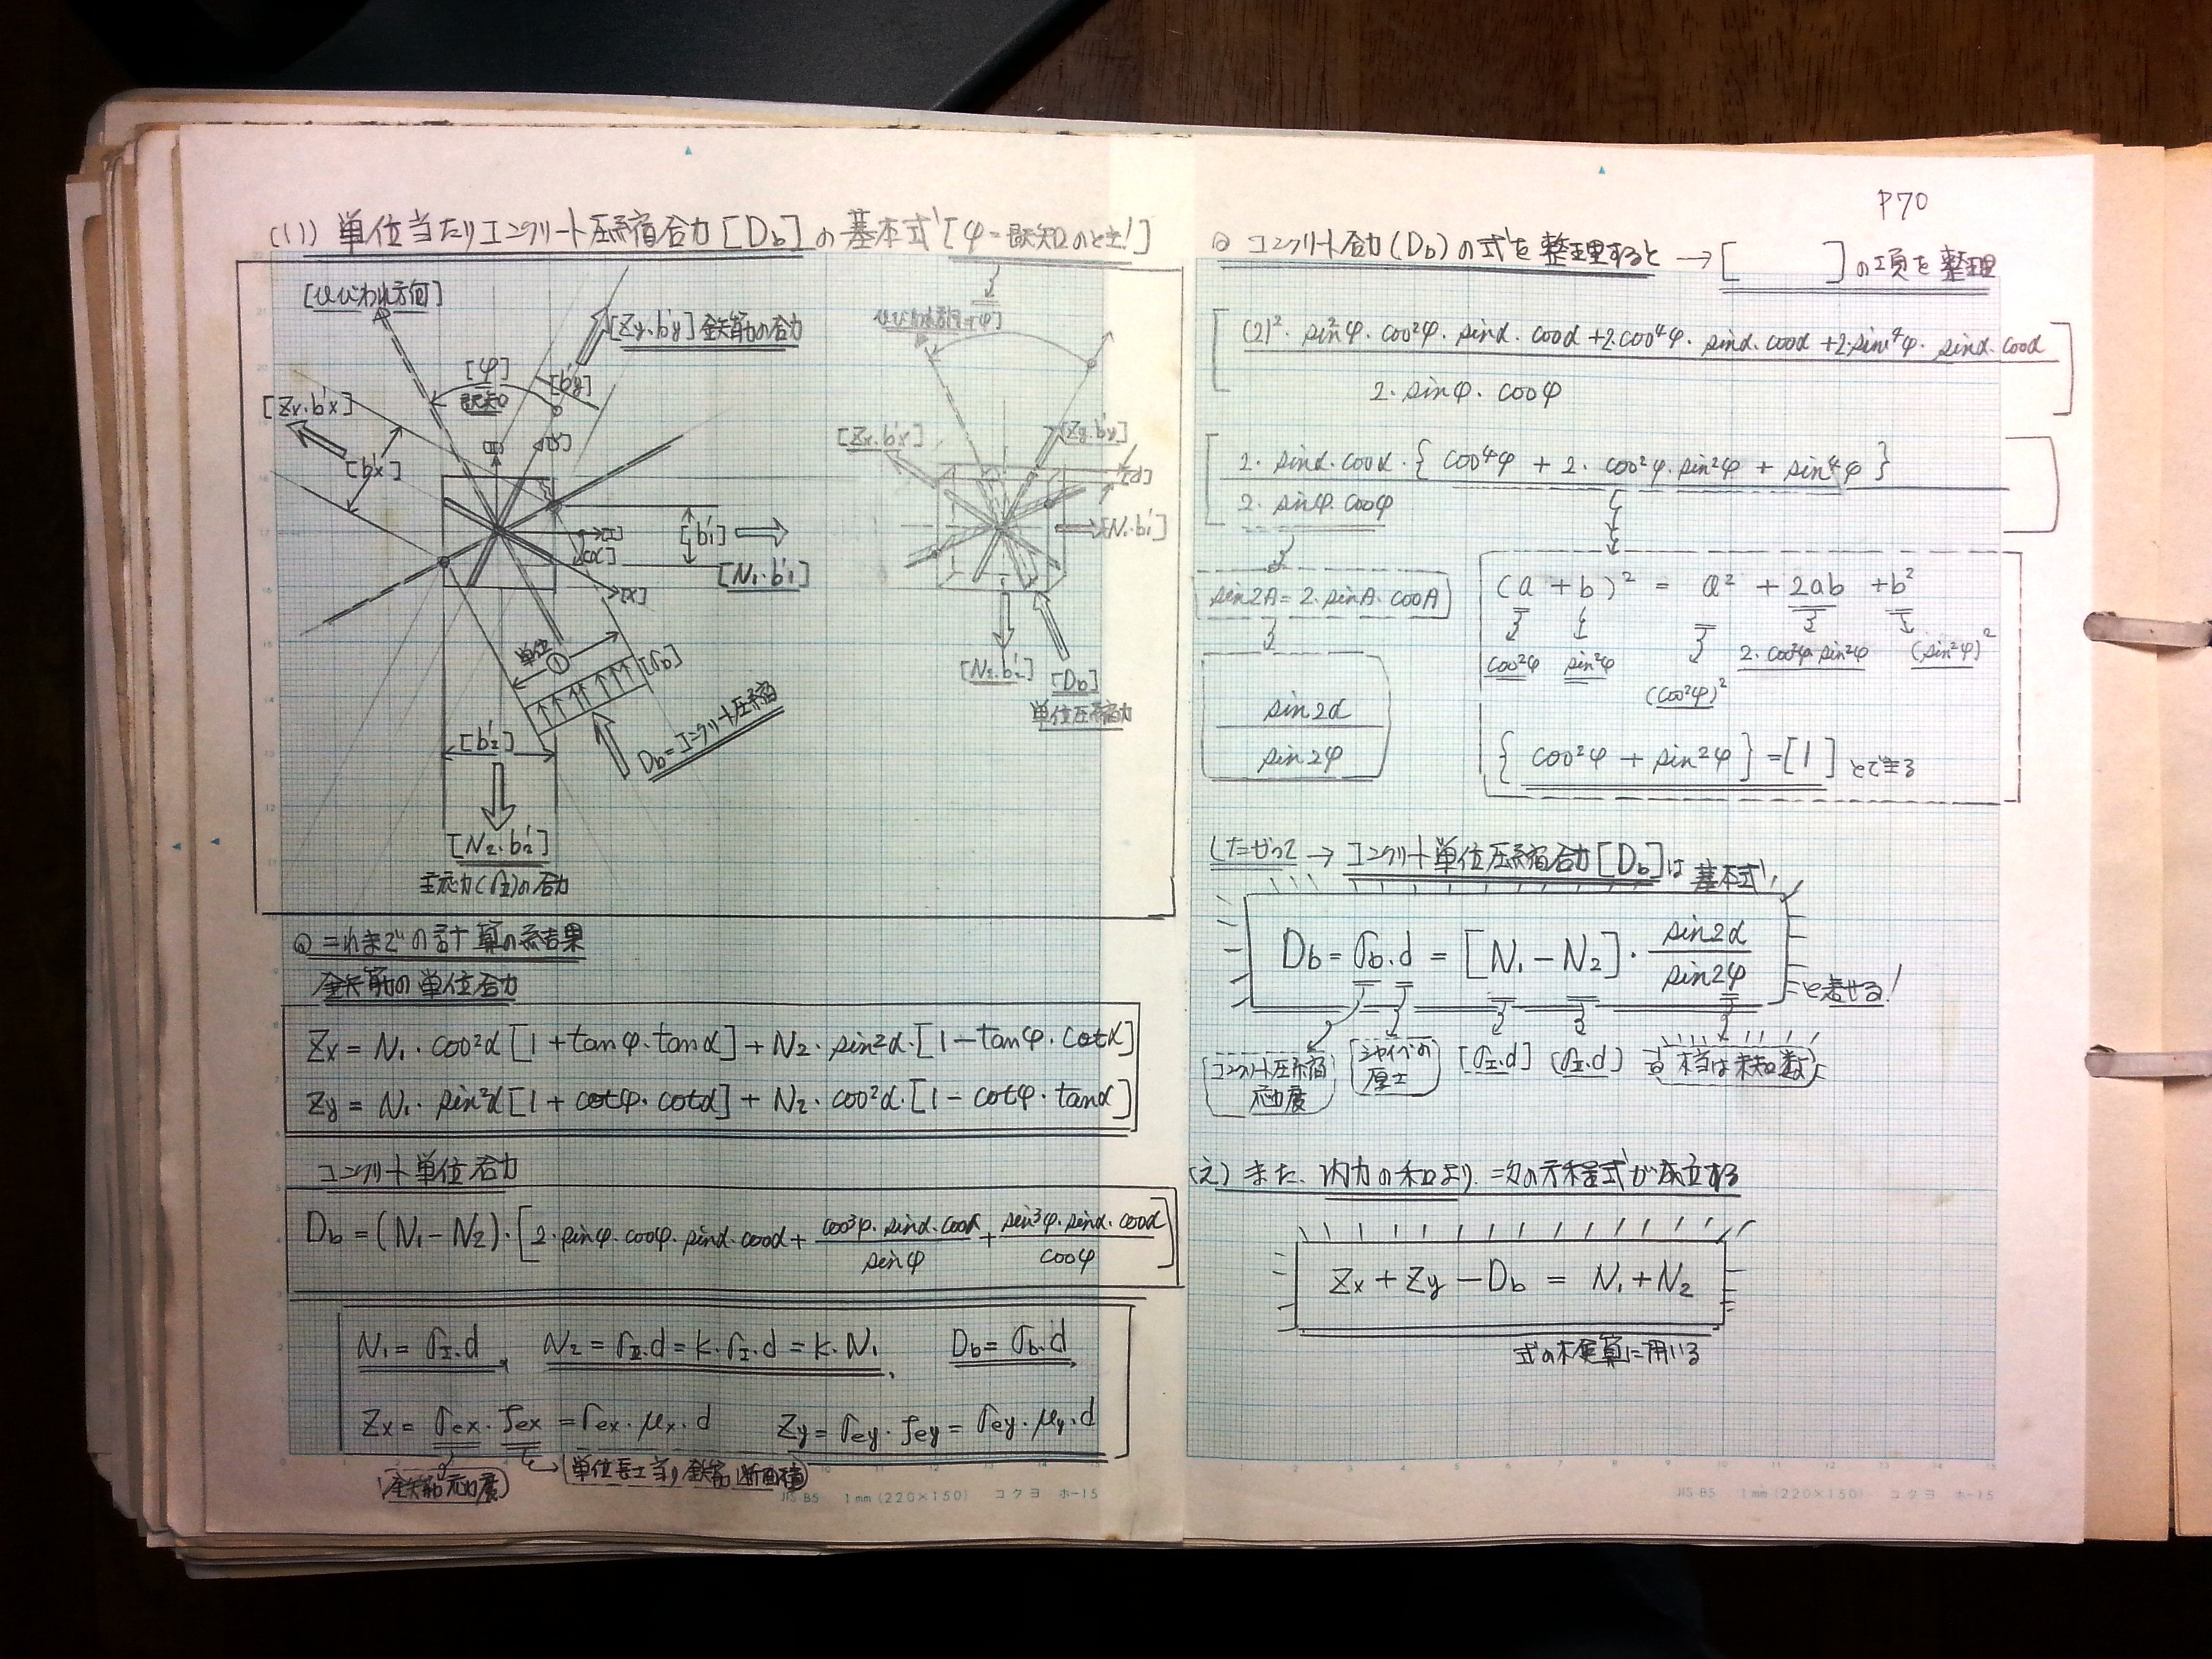 (1) 単位当たりコンクリート圧縮合力[Db]の基本式[φ=既知のとき!]
[ひびわれ方向]
[Zy・b'y]鉄筋の合力
[φ]
既知
[b'y]
[Zx・b'x]
[b'x]
[y]
[I]
[α]
[b'1]
[N1・b'1]
[x]
単位
①
[σb]
Db=コンクリート圧縮
[b'2]
[N2・b'2]
主応力(σII)の合力
[Zx・b'x]
[Zy・b'y]
[d]
[N1・b'1]
[N2・b'2]
[Db]
単位圧縮力
◎これまでの計算の結果
鉄筋の単位合力
Zx = N1・cos²α[1+tanφ・tanα]+N2・sin²α・[1-tanφ・cotα]
Zy = N1・sin²α[1+cotφ・cotα]+N2・cos²α・[1-cotφ・tanα]
コンクリート単位合力
Db=(N1-N2)・[2・sinφ・cosφ・sinα・cosα+ cos³φ・sinα・cosα/sinφ + sin³φ・sinα・cosα/cosφ]
N1=σI・d, N2=σII・d=k・σI・d=k・N1, Db=σb・d,
Zx=σex・fex=σex・μx・d Zy=σey・fey=σey・μy・d
(鉄筋応力度) (単位長さ当り鉄筋断面積)
JIS B5 1mm(220×150) コクヨ ホ-15
P70
◎コンクリート合力(Db)の式を整理すると→[ ]の項を整理
[(2)²・sin²φ・cos²φ・sinα・cosα+2・cos⁴φ・sinα・cosα+2・sin⁴φ・sinα・cosα
2・sinφ・cosφ]
[2・sinα・cosα・{cos⁴φ+2・cos²φ・sin²φ+sin⁴φ}
2・sinφ・cosφ]
sin2A=2・sinA・cosA
sin2α
sin2φ
(a+b)² = a²+2ab+b²
cos²φ sin²φ (cos²φ)² 2・cos²φ sin²φ (sin²φ)²
{cos²φ+sin²φ}=[1]とできる
したがって→コンクリート単位圧縮合力[Db]は基本式
Db=σb・d=[N1-N2]・sin2α/sin2φ
と表せる!
コンクリート圧縮応力度
シャイベの厚さ
[σI・d] [σII・d] 本当は未知数
(2) また、内力の和より、次の方程式が成立する
Zx+Zy-Db = N1+N2
式の検算に用いる
JIS B5 1mm(220×150) コクヨ ホ-15